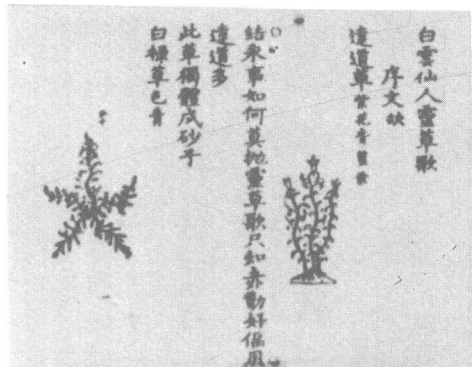 白雲仙人靈草歌
序文缺
遠道草紫花青
結汞事如何莫抛靈草歌只知赤勤好偏用
遠道多
此草獨體成砂子
白草色青